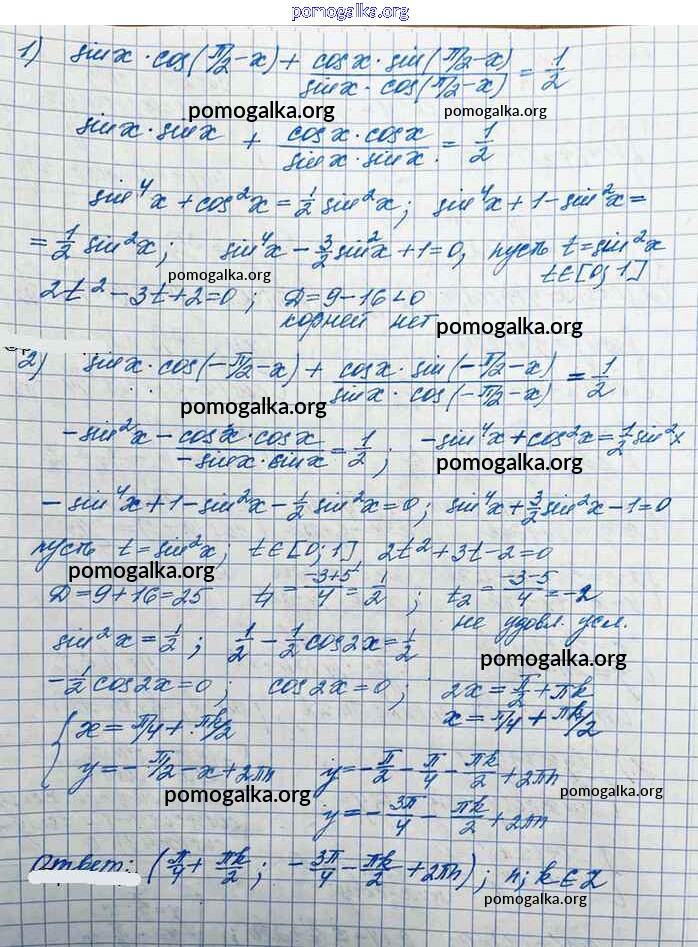 pomogalka.org
1) sin x · cos(π/2 - x) + (cos x · sin(π/2 - x))/(sin x · cos(π/2 - x)) = 1/2
pomogalka.org pomogalka.org
sin x · sin x + (cos x · cos x)/(sin x · sin x) = 1/2
sin⁴x + cos²x = 1/2 sin²x; sin⁴x + 1 - sin²x =
= 1/2 sin²x; sin⁴x - 3/2 sin²x + 1 = 0, пусть t = sin²x
pomogalka.org t∈[0; 1]
2t² - 3t + 2 = 0; D = 9 - 16 < 0
корней нет pomogalka.org
2) sin x · cos(-π/2 - x) + (cos x · sin(-π/2 - x))/(sin x · cos(-π/2 - x)) = 1/2
pomogalka.org
-sin²x - (cos x · cos x)/(-sin x · sin x) = 1/2; -sin⁴x + cos²x = 1/2 sin²x
pomogalka.org
-sin⁴x + 1 - sin²x - 1/2 sin²x = 0; sin⁴x + 3/2 sin²x - 1 = 0
пусть t = sin²x; t∈[0; 1] 2t² + 3t - 2 = 0
pomogalka.org
D = 9 + 16 = 25 t₁ = (-3+5)/4 = 1/2; t₂ = (-3-5)/4 = -2
не удовл. усл.
sin²x = 1/2; 1/2 - 1/2 cos 2x = 1/2
pomogalka.org
-1/2 cos 2x = 0; cos 2x = 0; 2x = π/2 + πk
x = π/4 + πk/2
{ x = π/4 + πk/2
y = -π/2 - x + 2πn y = -π/2 - π/4 - πk/2 + 2πn
pomogalka.org pomogalka.org
y = -3π/4 - πk/2 + 2πn
Ответ: (π/4 + πk/2; -3π/4 - πk/2 + 2πn); n; k ∈ Z
pomogalka.org